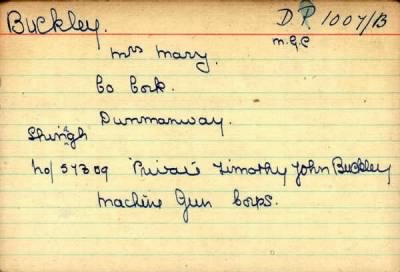 Buckley. DR 1007/B
M.G.C
Mrs Mary.
Co Cork.
Dunmanway.
Shanagh
No/ 57309 Private Timothy John Buckley
Machine Gun Corps.